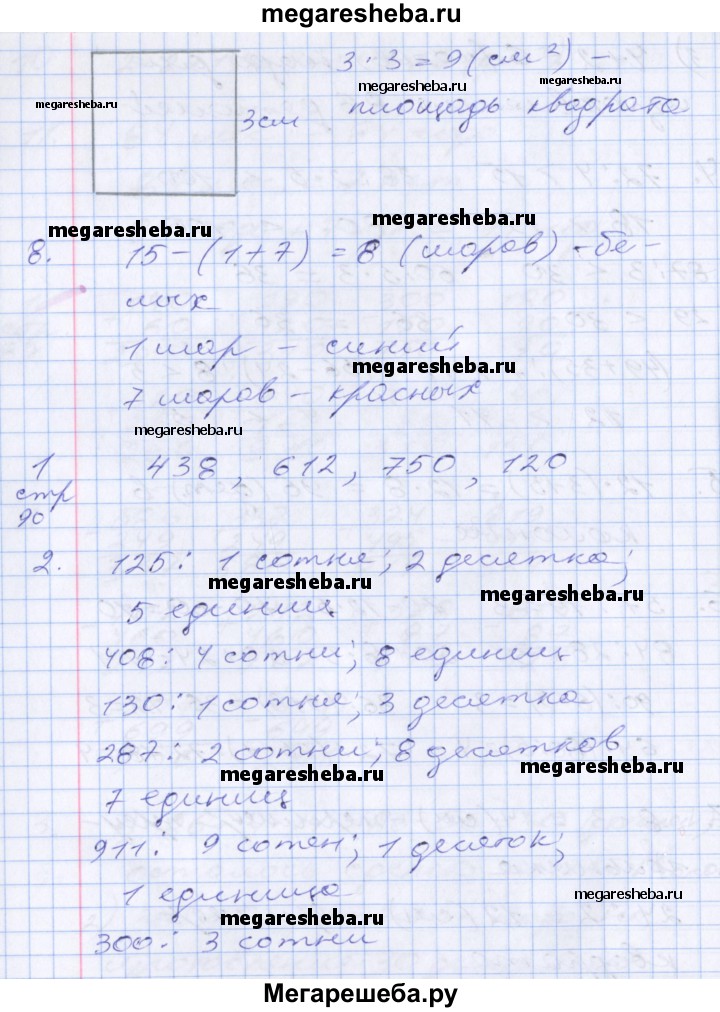 megaresheba.ru
3 · 3 = 9 (см²) –
megaresheba.ru
megaresheba.ru
megaresheba.ru
3 см площадь квадрата
megaresheba.ru
megaresheba.ru
8. 15 – (1 + 7) = 8 (шаров) – бе-
лых
1 шар – синий
megaresheba.ru
7 шаров – красных
megaresheba.ru
1 438, 612, 750, 120
стр
90
2. 125: 1 сотня; 2 десятка;
megaresheba.ru
megaresheba.ru
5 единиц
408: 4 сотни; 8 единиц
130: 1 сотня; 3 десятка
287: 2 сотни; 8 десятков
megaresheba.ru
megaresheba.ru
7 единиц
911: 9 сотен; 1 десяток;
1 единица
megaresheba.ru
megaresheba.ru
300: 3 сотни
Мегарешеба.ру